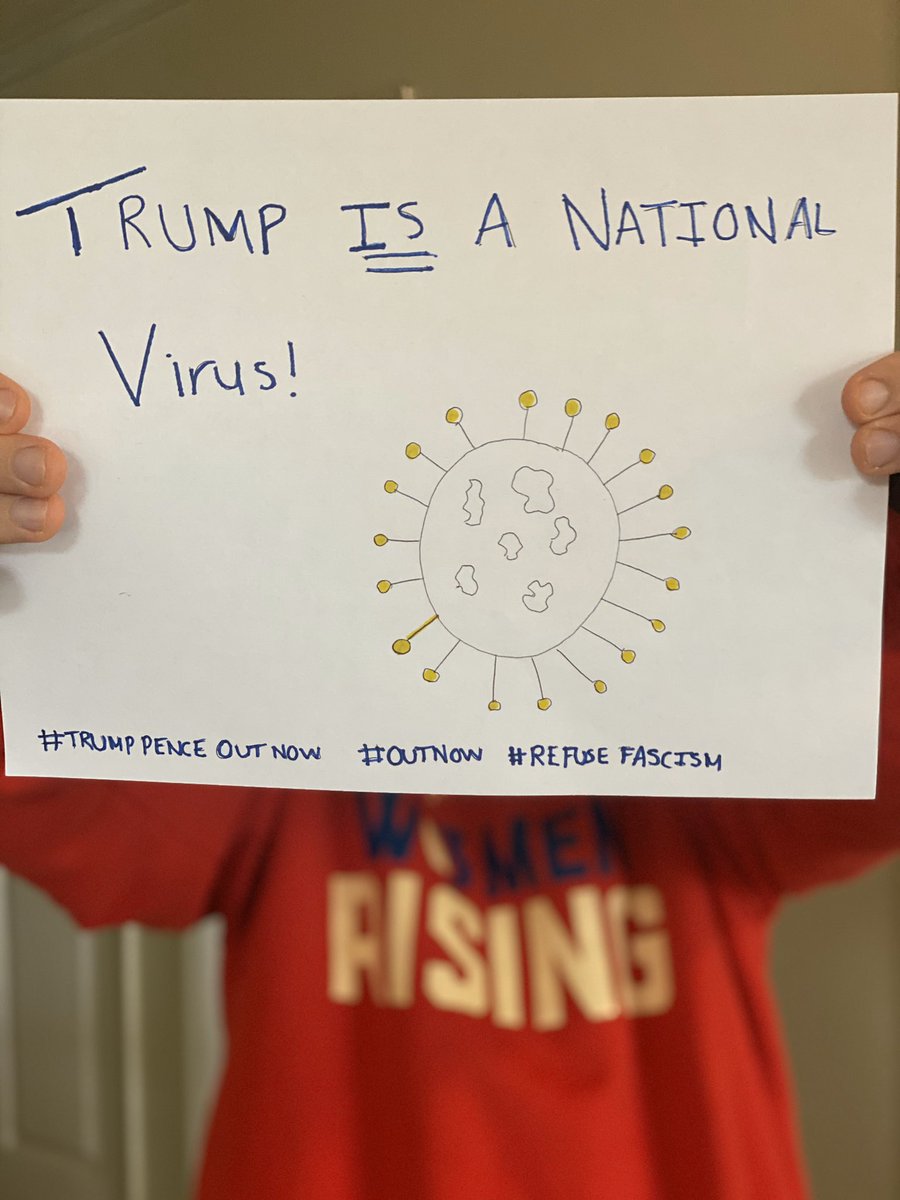 TRUMP IS A NATIONAL
Virus!
#TRUMP PENCE OUT NOW #OUTNOW #REFUSE FASCISM
WOMEN
RISING